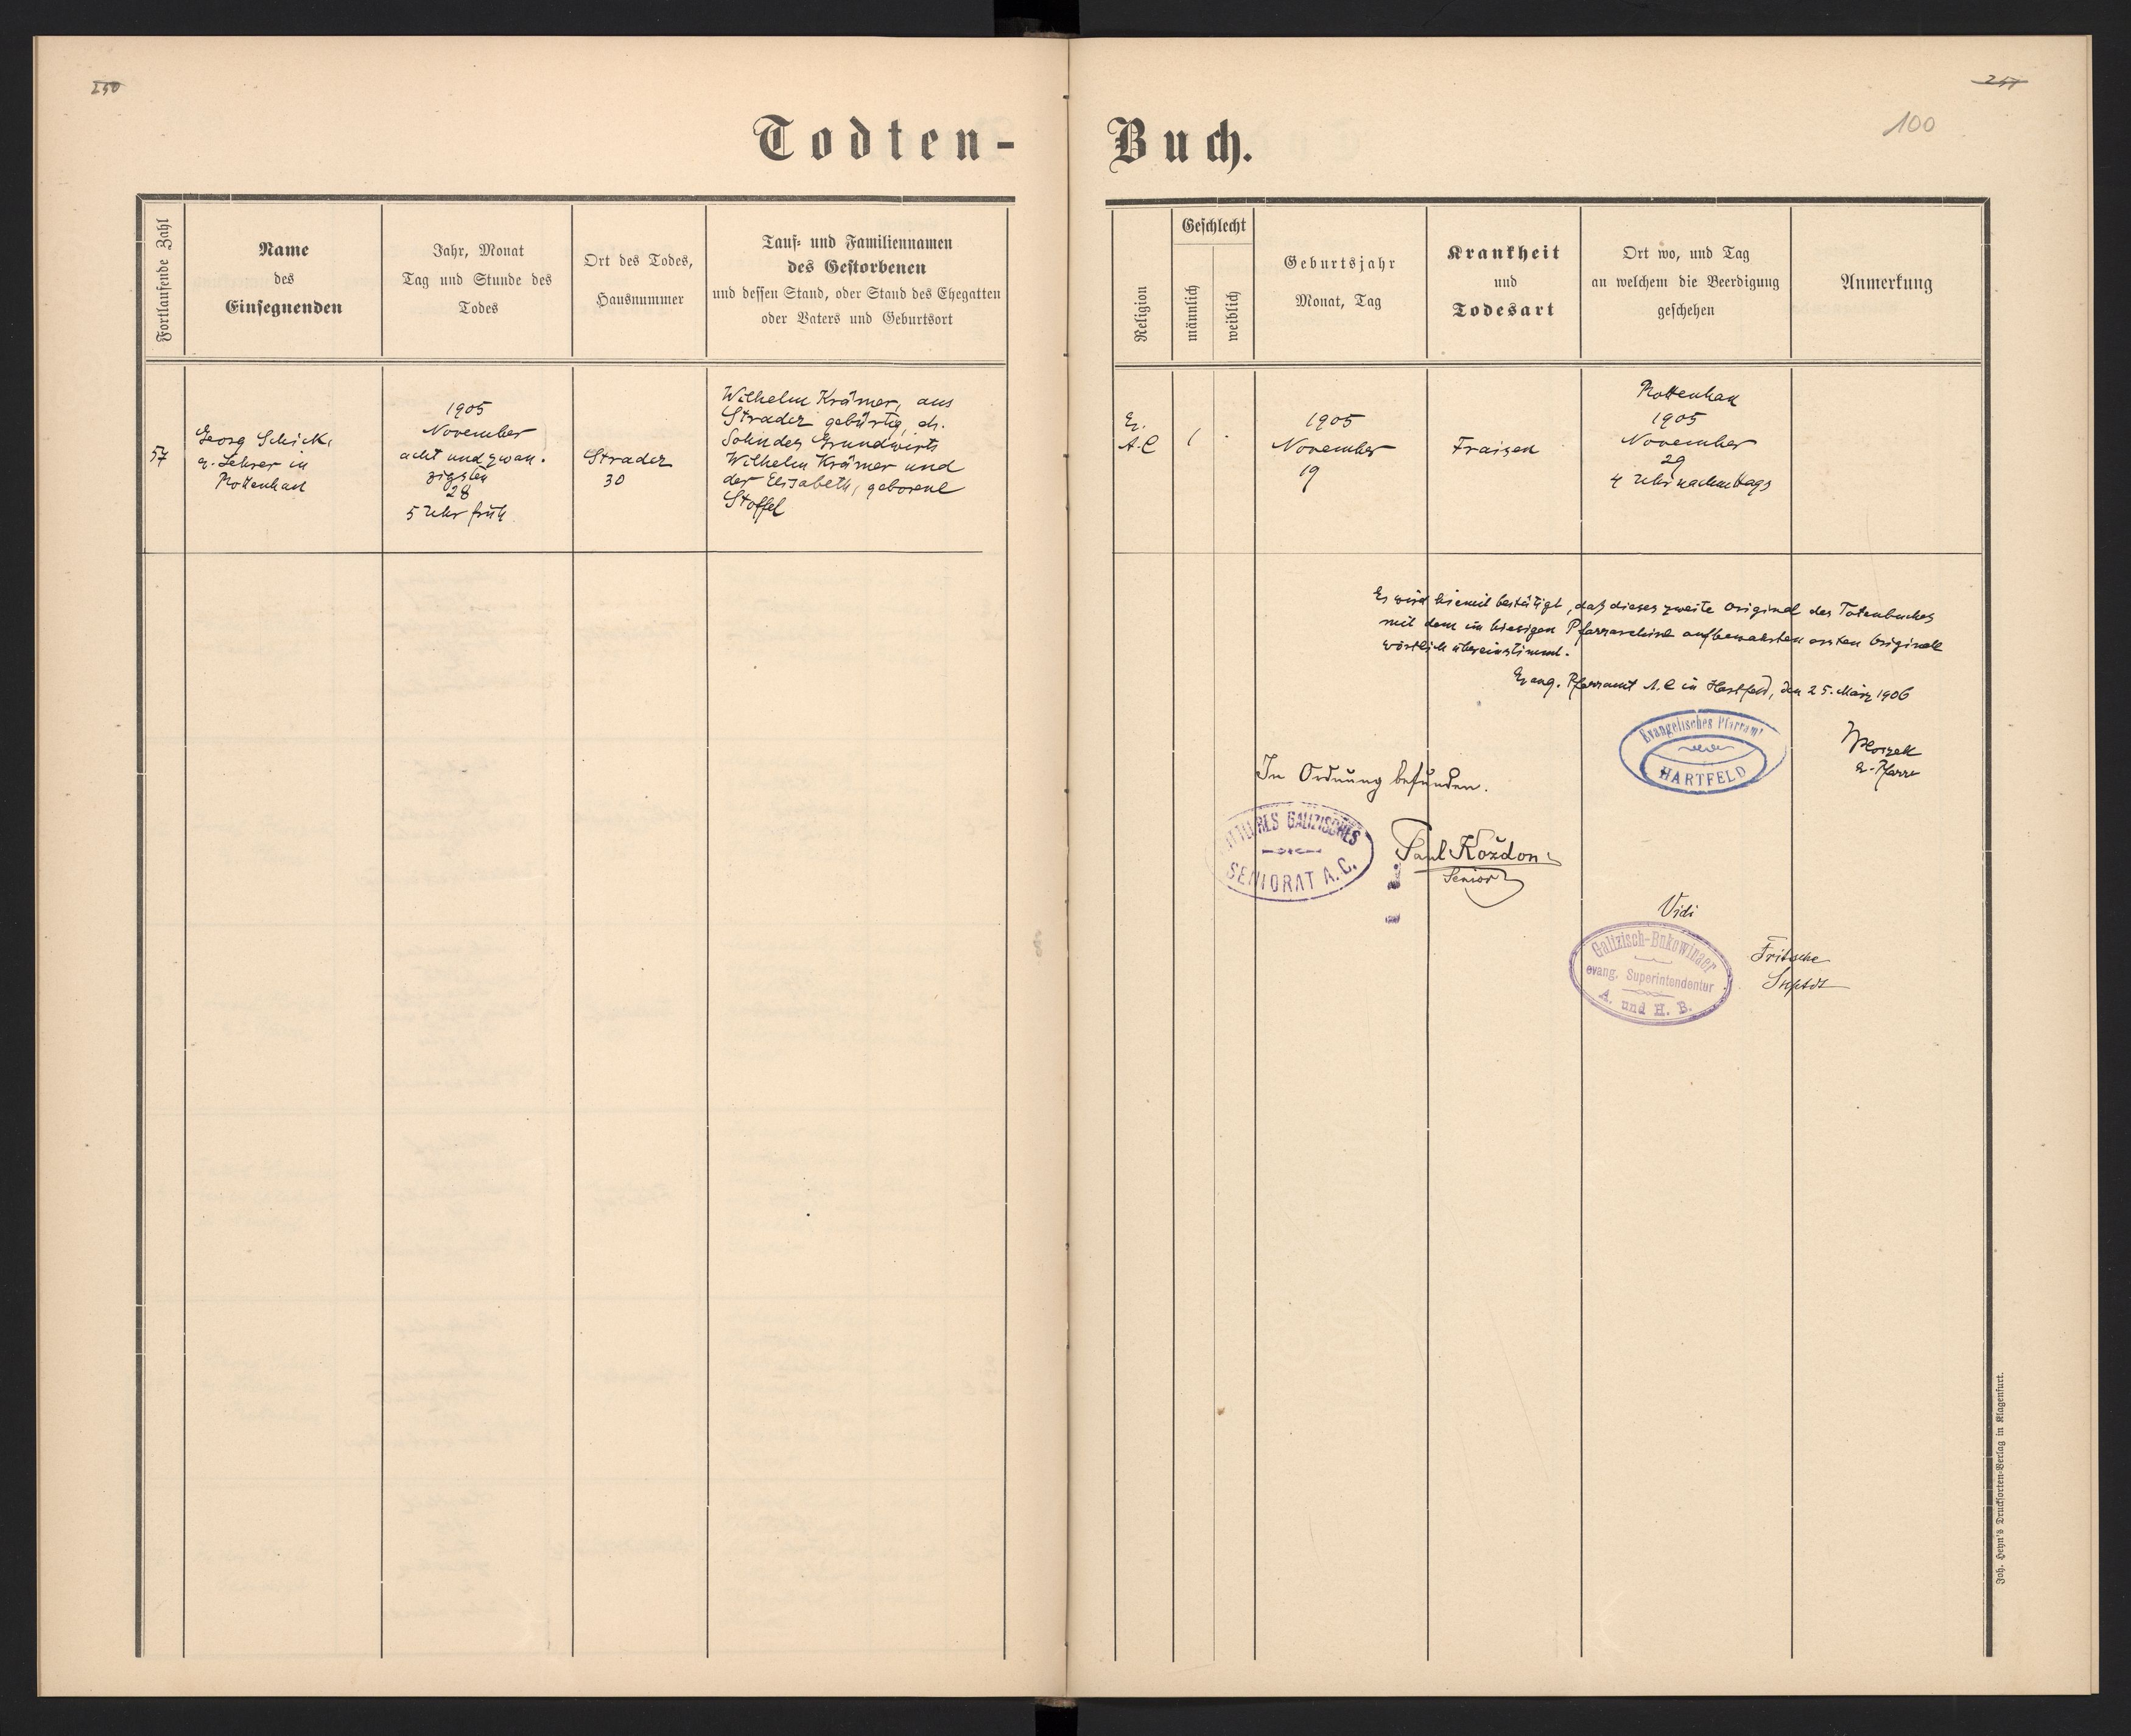 250
251
100
Todten-
Buch.
Fortlaufende Zahl
Name
des
Einsegnenden
Jahr, Monat
Tag und Stunde des
Todes
Ort des Todes,
Hausnummer
Tauf- und Familiennamen
des Gestorbenen
und dessen Stand, oder Stand des Ehegatten
oder Vaters und Geburtsort
Religion
Geschlecht
männlich
weiblich
Geburtsjahr
Monat, Tag
Krankheit
und
Todesart
Ort wo, und Tag
an welchem die Beerdigung
geschehen
Anmerkung
57
Georg Schick,
ev. Lehrer in
Rottenhan
1905
November
acht und zwan-
zigsten
28
5 Uhr früh
Stradez
30
Wilhelm Krämer, aus
Stradez gebürtig, ch.
Sohn des Grundwirts
Wilhelm Krämer und
der Elisabeth, geborene
Stoffel
Ev.
A.C
1
1905
November
19
Fraisen
Rottenhan
1905
November
29
4 Uhr nachmittags
Es wird hiemit bestätigt, daß dieses zweite Original des Totenbuches
mit dem im hiesigen Pfarrarchive aufbewahrten ersten Originale
wörtlich übereinstimmt.
Evang. Pfarramt A.C in Hartfeld, den 25. März 1906
Evangelisches Pfarramt
HARTFELD
ev. Pfarrer
In Ordnung befunden.
MITTLERES GALIZISCHES
SENIORAT A.C.
Paul Koždon
Senior
Vidi
Galizisch-Bukowinaer
evang. Superintendentur
A. und H. B.
Fritsche
Suptdt
Joh. Heyn's Drucksorten-Verlag in Klagenfurt.